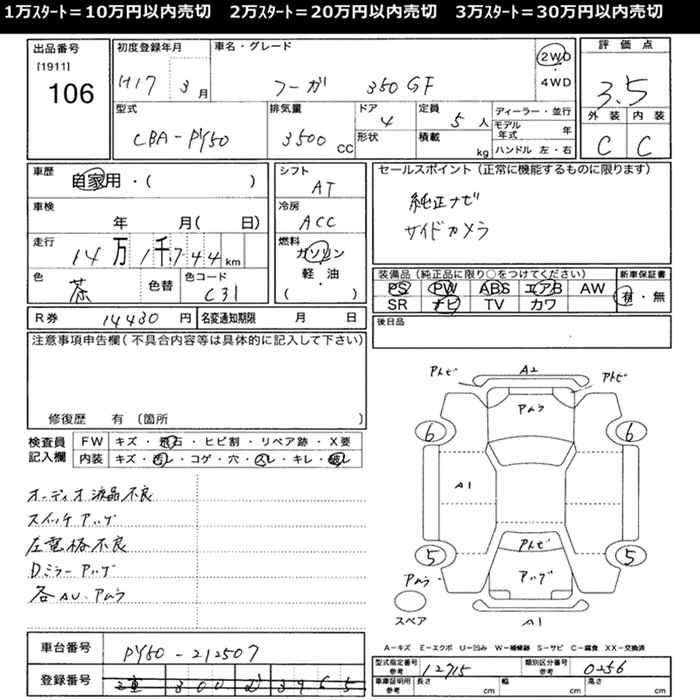 1万ｽﾀｰﾄ＝10万円以内売切　2万ｽﾀｰﾄ＝20万円以内売切　3万ｽﾀｰﾄ＝30万円以内売切
出品番号
[1911]
106
初度登録年月
H17 3月
車名・グレード
フーガ 350GF
2WD
4WD
評価点
3.5
外装 内装
C C
型式
CBA-PY50
排気量
3500 CC
ドア
4
形状
定員
5人
積載
kg
ディーラー・並行
モデル年式 年
ハンドル 左・右
車歴
自家用・( )
車検
年 月( 日)
走行
14万1千744km
色
茶
色替
色コード
C31
シフト
AT
冷房
ACC
燃料
ガソリン
軽・油
( )
セールスポイント (正常に機能するものに限ります)
純正ナビ
サイドカメラ
装備品 (純正品に限り○をつけてください)
PS PW ABS エアB AW
SR ナビ TV カワ
新車保証書
有・無
R券 14430円
名変通知期限 月 日
後日品
注意事項申告欄(不具合内容等は具体的に記入して下さい)
修復歴 有 〔箇所 〕
検査員記入欄
FW キズ・飛石・ヒビ割・リペア跡・X要
内装 キズ・汚レ・コゲ・穴・スレ・キレ・破レ
オーディオ液晶不良
スイッチアッゲ
左電格不良
Dミラーアッゲ
各AU.アムラ
アトビ A2 アトビ
アムラ
6 6
A1
5 5
アトビ
アッゲ
アムラ
スペア
A1
A-キズ E-エクボ U-凹み W-補修跡 S-サビ C-腐食 XX-交換済
車台番号
PY50-212507
登録番号
型式指定番号
参考
12715
類別区分番号
参考
0256
車庫証明用
参考
長さ cm 幅 cm 高さ cm